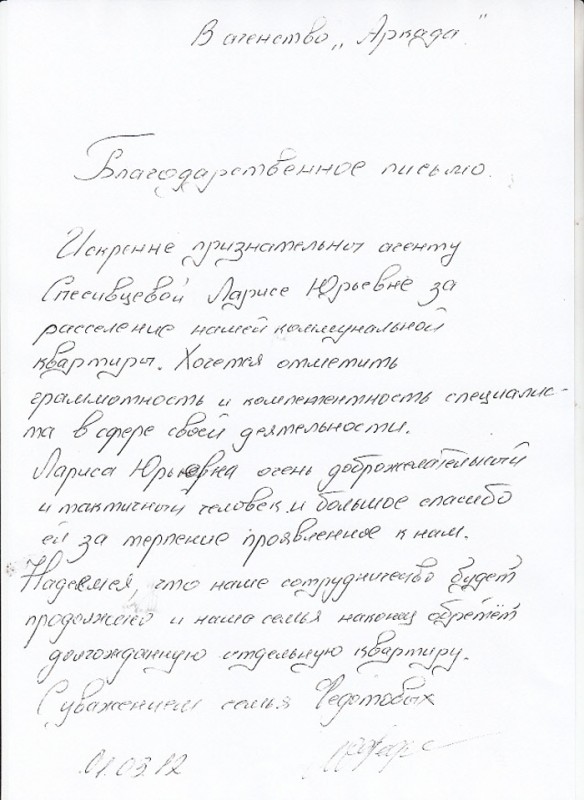 В агенство „Аркада"
Благодарственное письмо.
Искренне признательны агенту
Спесивцевой Ларисе Юрьевне за
расселение нашей коммунальной
квартиры. Хочется отметить
граммотность и компетентность специалис-
та в сфере своей деятельности.
Лариса Юрьевна очень доброжелательный
и тактичный человек и большое спасибо
ей за терпение проявленное к нам.
Надеемся, что наше сотрудничество будет
продолжено и наша семья наконец обретёт
долгожданную отдельную квартиру.
С уважением семья Федотовых
01.03.12